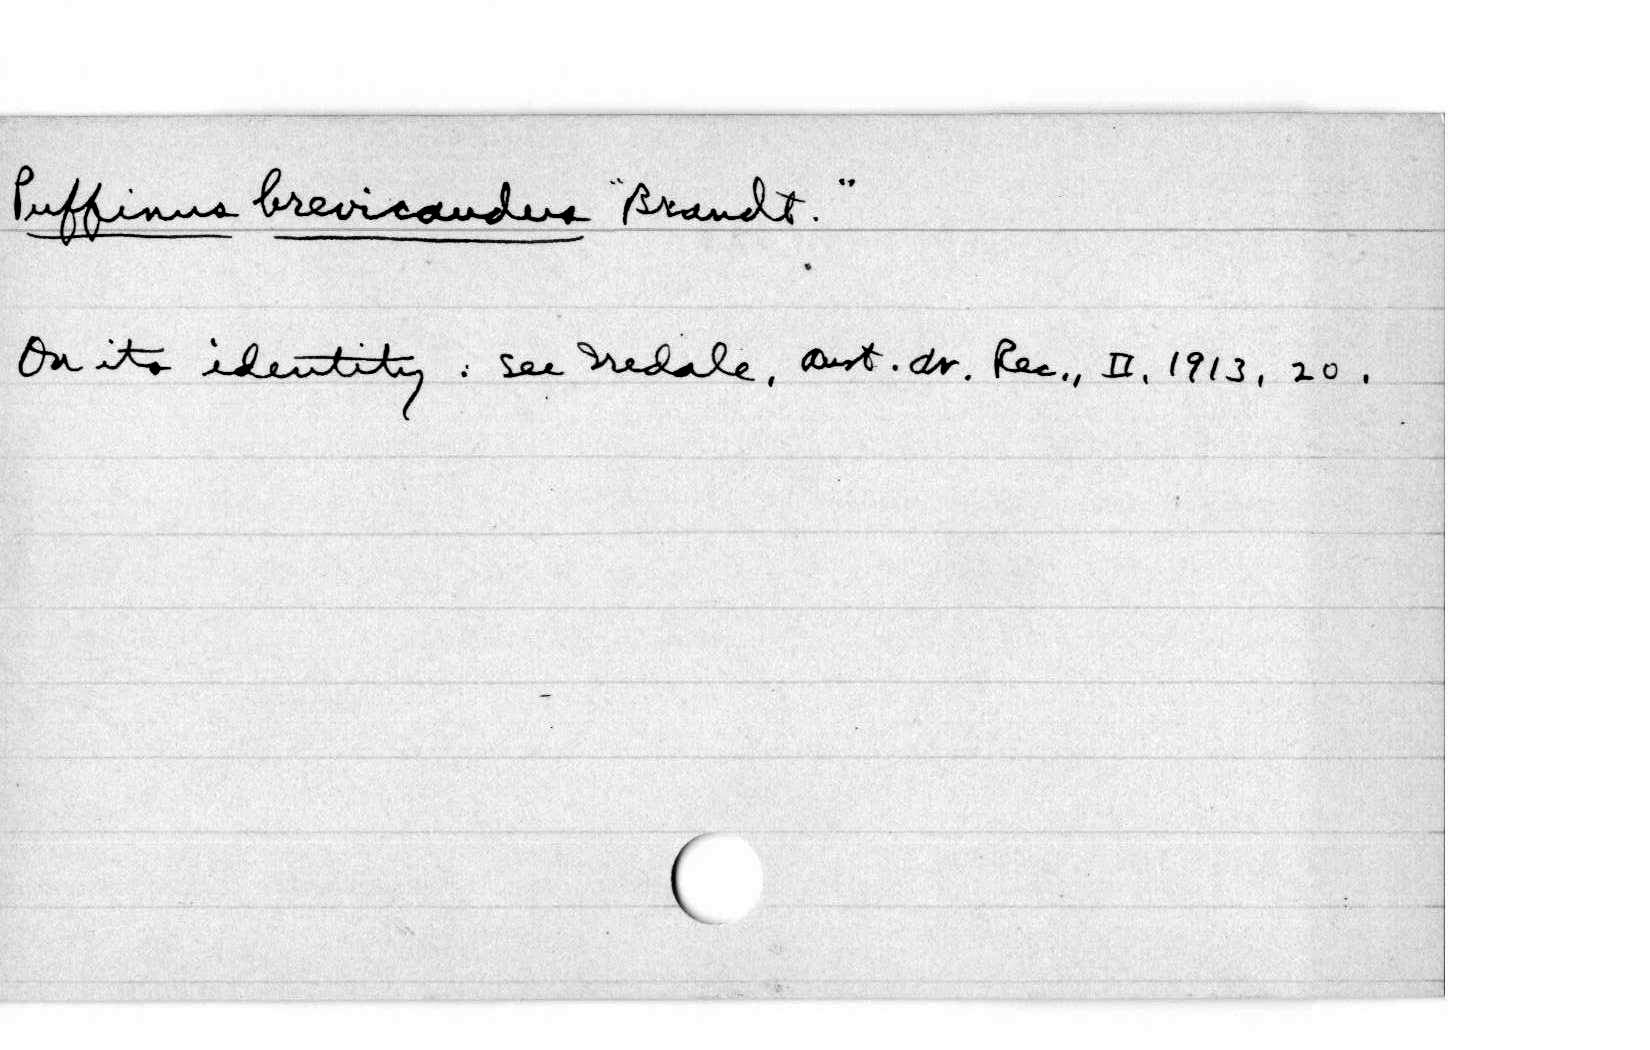 Puffinus brevicaudus "Brandt."
On its identity : see Iredale, Aust. Av. Rec., II, 1913, 20.